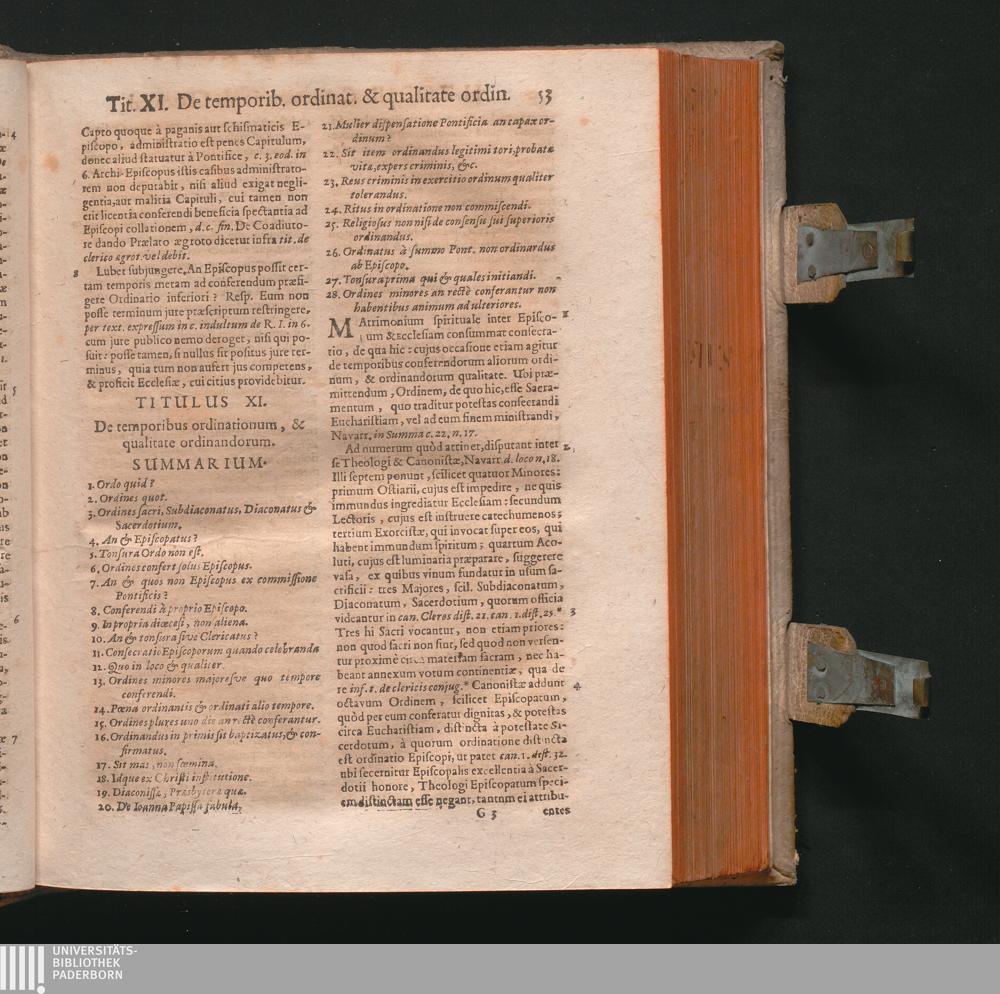 Tit. XI. De temporib. ordinat. & qualitate ordin. 53
Capto quoque à paganis aut schismaticis E-
piscopo, administratio est penes Capitulum,
donec aliud statuatur à Pontifice, c. 3. eod. in
6. Archi-Episcopus istis casibus administrato-
rem non deputabit, nisi aliud exigat negli-
gentia, aut malitia Capituli, cui tamen non
erit licentia conferendi beneficia spectantia ad
Episcopi collationem, d. c. fin. De Coadiuto-
re dando Prælato ægroto dicetur infra tit. de
clerico ægrot. vel debit.
8 Lubet subjungere, An Episcopus possit cer-
tam temporis metam ad conferendum præfi-
gere Ordinario inferiori? Resp. Eum non
posse terminum jure præscriptum restringere,
per text. expressum in c. indultum de R. I. in 6.
cum jure publico nemo deroget, nisi qui po-
suit: posse tamen, si nullus sit positus jure ter-
minus, quia tum non aufert jus competens,
& proficit Ecclesiæ, cui citius providebitur.
TITULUS XI.
De temporibus ordinationum, &
qualitate ordinandorum.
SUMMARIUM.
1. Ordo quid?
2. Ordines quot.
3. Ordines sacri, Subdiaconatus, Diaconatus &
Sacerdotium.
4. An & Episcopatus?
5. Tonsura Ordo non est.
6. Ordines confert solus Episcopus.
7. An & quos non Episcopus ex commissione
Pontificis?
8. Conferendi à proprio Episcopo.
9. In propria diœcesi, non aliena.
10. An & tonsura sive Clericatus?
11. Consecratio Episcoporum quando celebranda
12. Quo in loco & qualiter
13. Ordines minores majoresve quo tempore
conferendi.
14. Pœna ordinantis & ordinati alio tempore.
15. Ordines plures uno die an rectè conferantur.
16. Ordinandus in primis sit baptizatus, & con-
firmatus.
17. Sit mas, non fœmina.
18. Idque ex Christi institutione.
19. Diaconissa, Presbytera quæ.
20. De Ioanna Papissa fabula.
21. Mulier dispensatione Pontificia an capax or-
dinum?
22. Sit item ordinandus legitimi tori, probatæ
vitæ, expers criminis, &c.
23. Reus criminis in exercitio ordinum qualiter
tolerandus.
24. Ritus in ordinatione non commiscendi.
25. Religiosus non nisi de consensu sui superioris
ordinandus.
26. Ordinatus à summo Pont. non ordinandus
ab Episcopo.
27. Tonsura prima qui & quales initiandi.
28. Ordines minores an rectè conferantur non
habentibus animum ad ulteriores.
MAtrimonium spirituale inter Episco- 1
um & Ecclesiam consummat consecra-
tio, de qua hic: cujus occasione etiam agitur
de temporibus conferendorum aliorum ordi-
num, & ordinandorum qualitate. Ubi præ-
mittendum, Ordinem, de quo hic, esse Sacra-
mentum, quo traditur potestas consecrandi
Eucharistiam, vel ad eum finem ministrandi,
Navarr. in Summa c. 22. n. 17.
Ad numerum quòd attinet, disputant inter 2
se Theologi & Canonistæ, Navarr. d. loco n. 18.
Illi septem ponunt, scilicet quatuor Minores:
primum Ostiarii, cujus est impedire, ne quis
immundus ingrediatur Ecclesiam: secundum
Lectoris, cujus est instruere catechumenos;
tertium Exorcistæ, qui invocat super eos, qui
habent immundum spiritum; quartum Aco-
luti, cujus est luminaria præparare, suggerere
vasa, ex quibus vinum fundatur in usum sa-
crificii: tres Majores, scil. Subdiaconatum,
Diaconatum, Sacerdotium, quorum officia
videantur in can. Cleros dist. 21. can. 1. dist. 25.* 3
Tres hi Sacri vocantur, non etiam priores:
non quod sacri non sint, sed quod non versen-
tur proximè circa materiam sacram, nec ha-
beant annexum votum continentiæ, qua de
re inf. t. de clericis conjug.* Canonistæ addunt 4
octavum Ordinem, scilicet Episcopatum,
quòd per eum conferatur dignitas, & potestas
circa Eucharistiam, distincta à potestate Sa-
cerdotum, à quorum ordinatione distincta
est ordinatio Episcopi, ut patet can. 1. dist. 32.
ubi secernitur Episcopalis excellentia à Sacer-
dotii honore, Theologi Episcopatum speci-
em distinctam esse negant, tantum ei attribu-
G 3 entes
UNIVERSITÄTS-
BIBLIOTHEK
PADERBORN